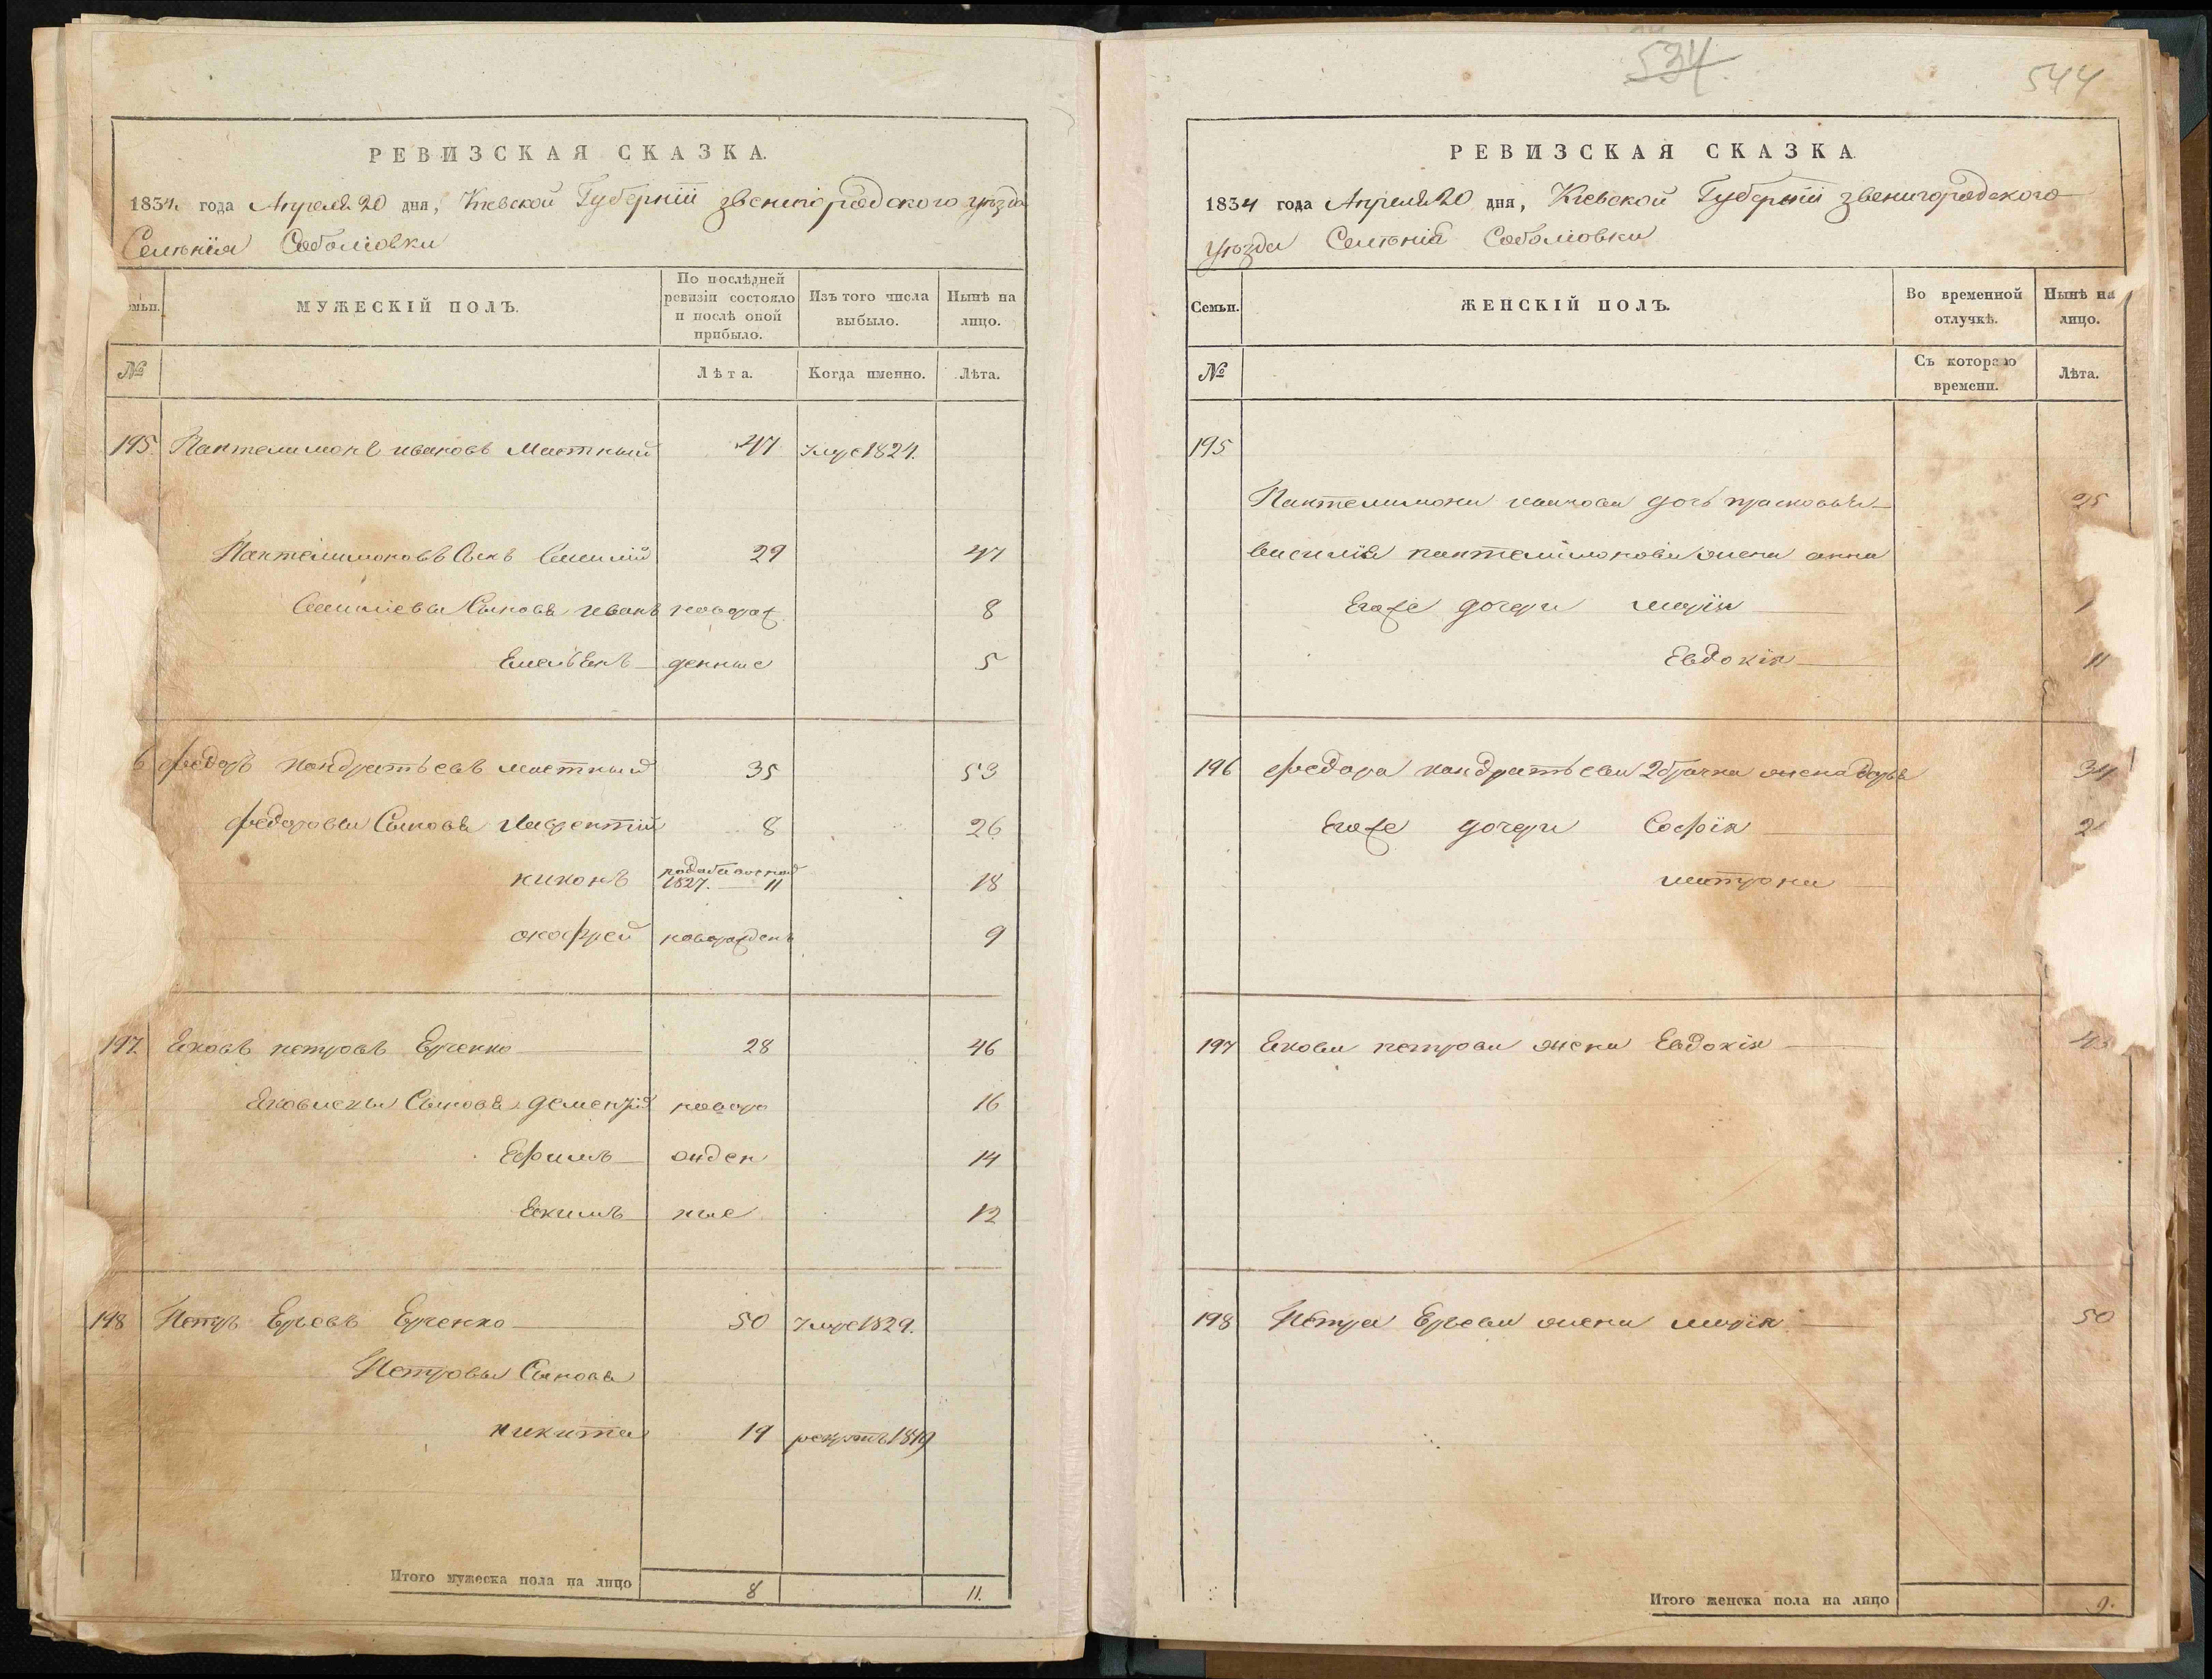 РЕВИЗСКАЯ СКАЗКА.
1834 года Апреля 20 дня, Киевской Губерніи звенигородского уезда
Селенія Соболиовки
МУЖЕСКІЙ ПОЛЪ.
По послѣдней ревизіи состояло и послѣ оной прибыло.
Изъ того числа выбыло.
Нынѣ на лицо.
№
Лѣта.
Когда именно.
Лѣта.
195 Пантелимонъ ивановъ Мастный 47 Умре 1824.
Пантелимоновъ Сынъ Василій 29 47
Василіевы Сыновя иванъ новорож 8
Емельенъ денные 5
федоръ кондратьевъ мастный 35 53
федоровы Сыновя Лаврентій 8 26
никонъ 1827. 11 18
онофрей новорожденъ 9
197. Яковъ петровъ Ерченко 28 46
Яковлевы Сыновя дементій новоро 16
Ефимъ жден 14
Якимъ ные 12
198 Петръ Ерьевъ Ерченко 50 Умре 1829.
Петровы Сыновя
никита 19 рекрутъ 1819
Итого мужеска пола на лицо 8 11.
534
544
РЕВИЗСКАЯ СКАЗКА
1834 года Апреля 20 дня, Киевской Губерніи звенигородского
уезда Селенія Соболиовки
Семьи.
ЖЕНСКІЙ ПОЛЪ.
Во временной отлучкѣ.
Нынѣ на лицо.
№
Съ котораго времени.
Лѣта.
195
Пантелимона иванова дочь прасковья 25
василія пантелімонова жена анна
Егоже дочери марія
Евдокія 11
196 федора кондратьева 2 брачна жена 34
Егоже дочери Софія 2
матрона
197 Якова петрова жена Евдокія
198 Петра Ерьева жена марія 50
Итого женска пола на лицо 9.